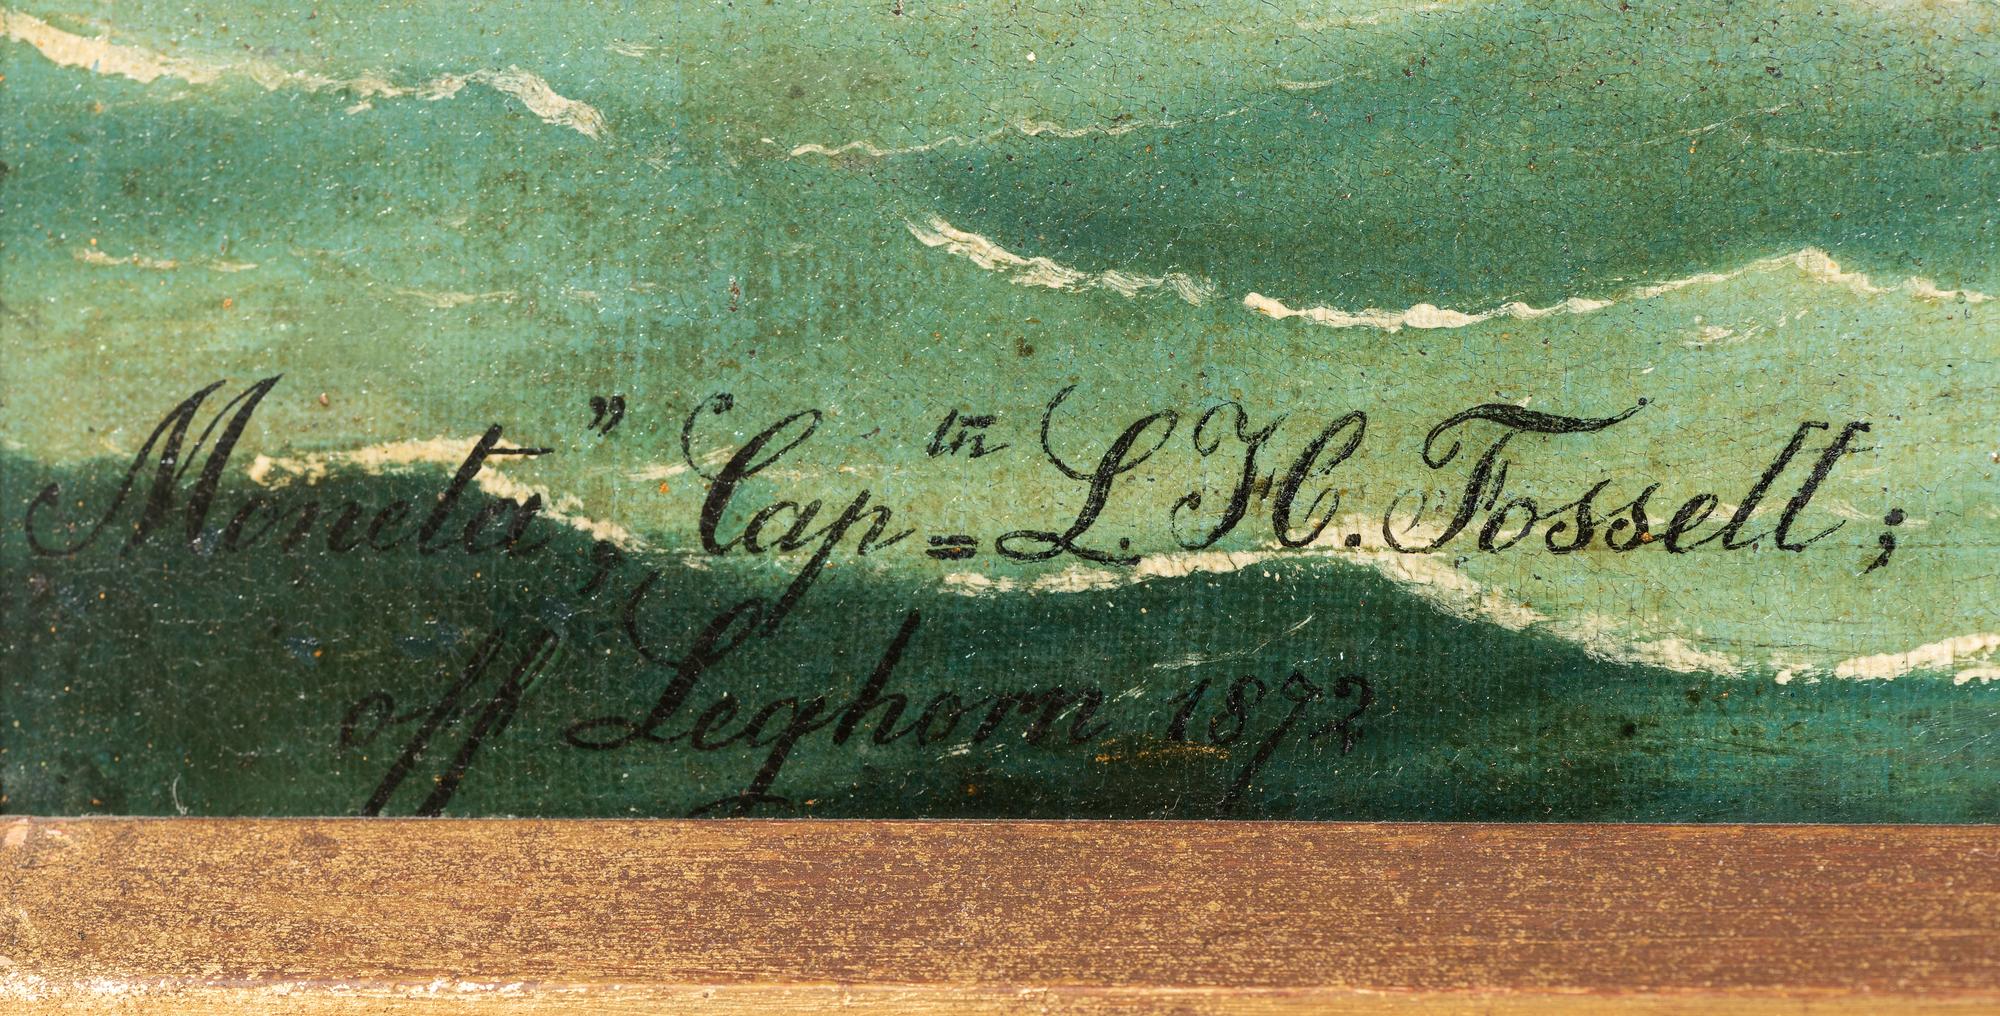 Moneta” Cap=tn L. H. Fossett;
off Leghorn 1872